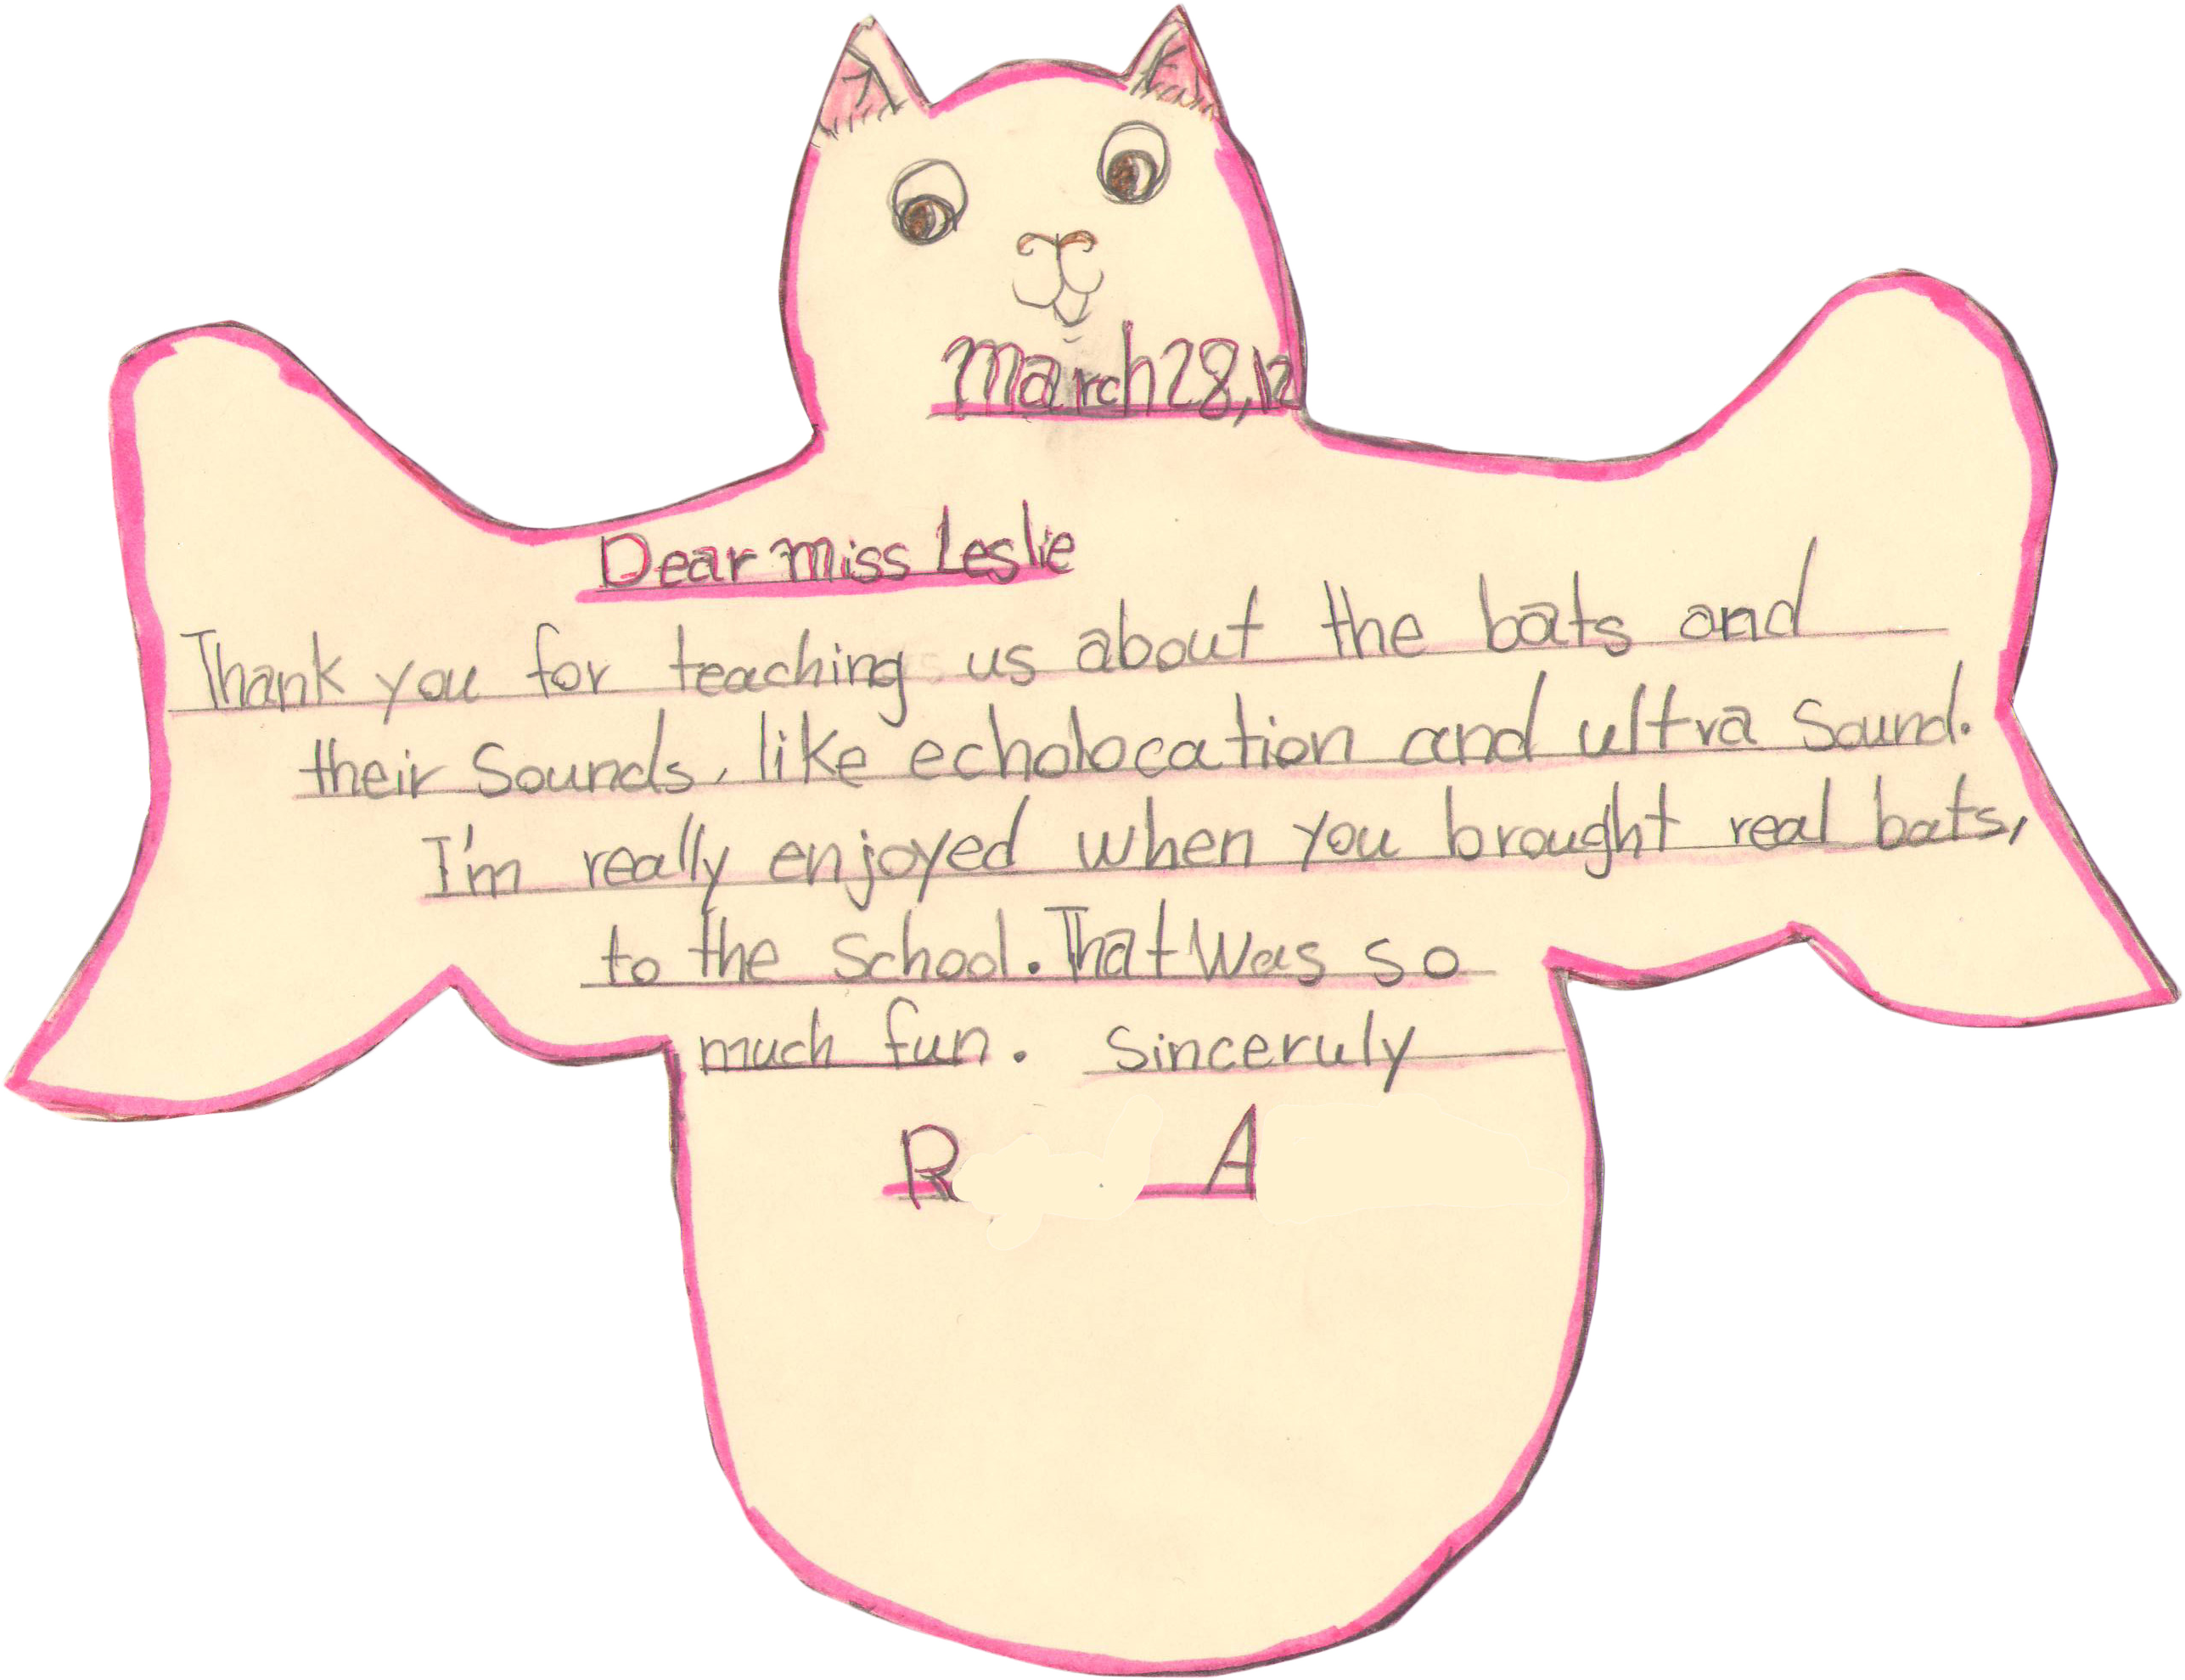 March 28, 12
Dear miss Leslie
Thank you for teaching us about the bats and
their Sounds, like echolocation and ultra Sound.
I'm really enjoyed when you brought real bats,
to the School. That Was so
much fun. Sinceruly
R A